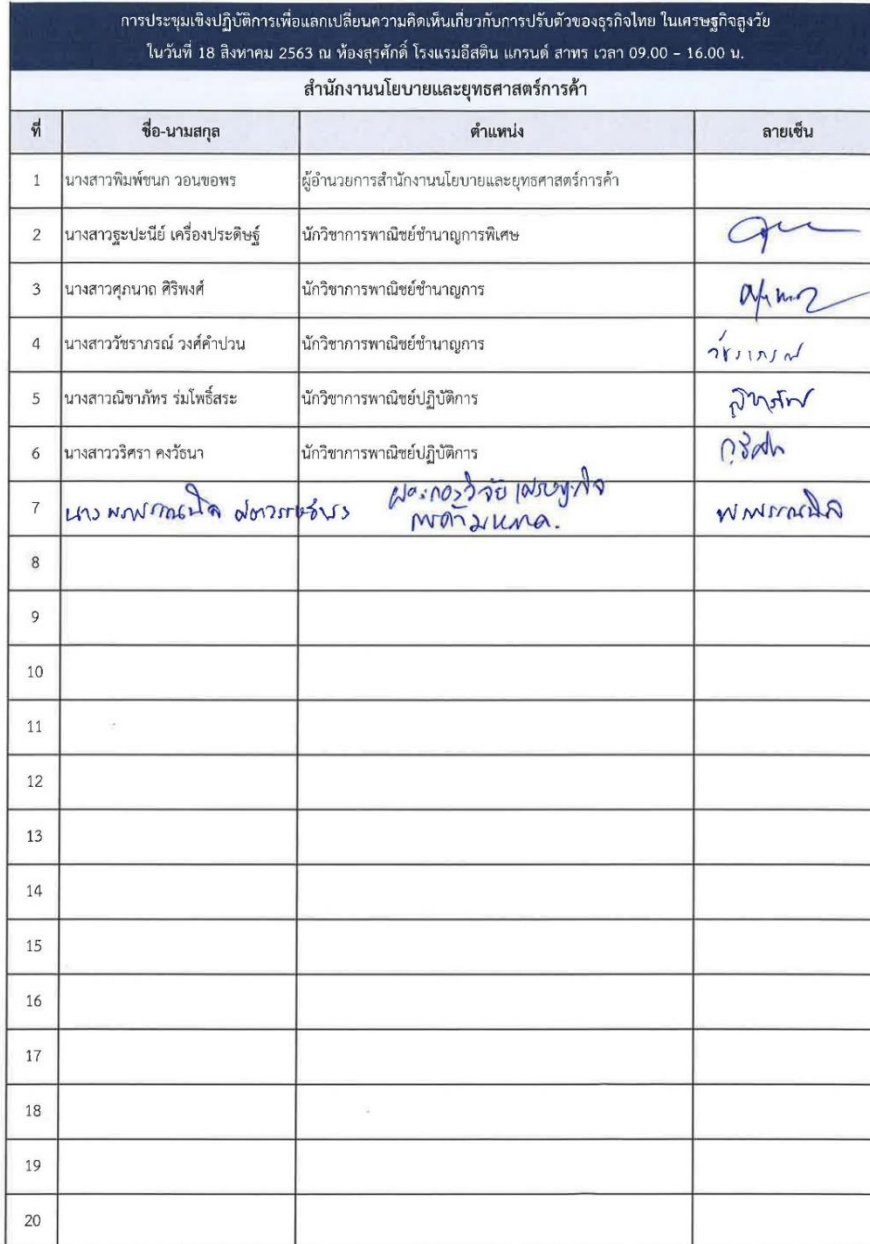 การประชุมเชิงปฏิบัติการเพื่อแลกเปลี่ยนความคิดเห็นเกี่ยวกับการปรับตัวของธุรกิจไทย ในเศรษฐกิจสูงวัย
ในวันที่ 18 สิงหาคม 2563 ณ ห้องสุรศักดิ์ โรงแรมอีสติน แกรนด์ สาทร เวลา 09.00 – 16.00 น.
สำนักงานนโยบายและยุทธศาสตร์การค้า
ที่ ชื่อ-นามสกุล ตำแหน่ง ลายเซ็น
1 นางสาวพิมพ์ชนก วอนขอพร ผู้อำนวยการสำนักงานนโยบายและยุทธศาสตร์การค้า
2 นางสาวฐะปะนีย์ เครื่องประดิษฐ์ นักวิชาการพาณิชย์ชำนาญการพิเศษ
3 นางสาวศุภนาถ ศิริพงศ์ นักวิชาการพาณิชย์ชำนาญการ
4 นางสาววัชราภรณ์ วงศ์คำปวน นักวิชาการพาณิชย์ชำนาญการ วัชราภรณ์
5 นางสาวณิชาภัทร ร่มโพธิ์สระ นักวิชาการพาณิชย์ปฏิบัติการ
6 นางสาววริศรา คงวัธนา นักวิชาการพาณิชย์ปฏิบัติการ
7 นาง
8
9
10
11
12
13
14
15
16
17
18
19
20